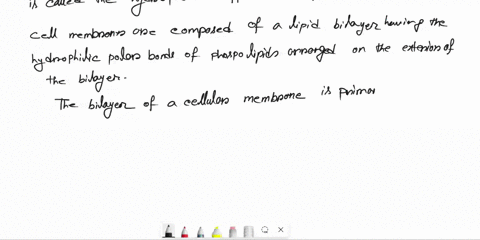 is called the
cell membrans are composed of a lipid bilayer having the
hydrophilic polar bonds of phospolipids arranged on the exterior of
the bilayer.
The bilayer of a cellular membrane is primar